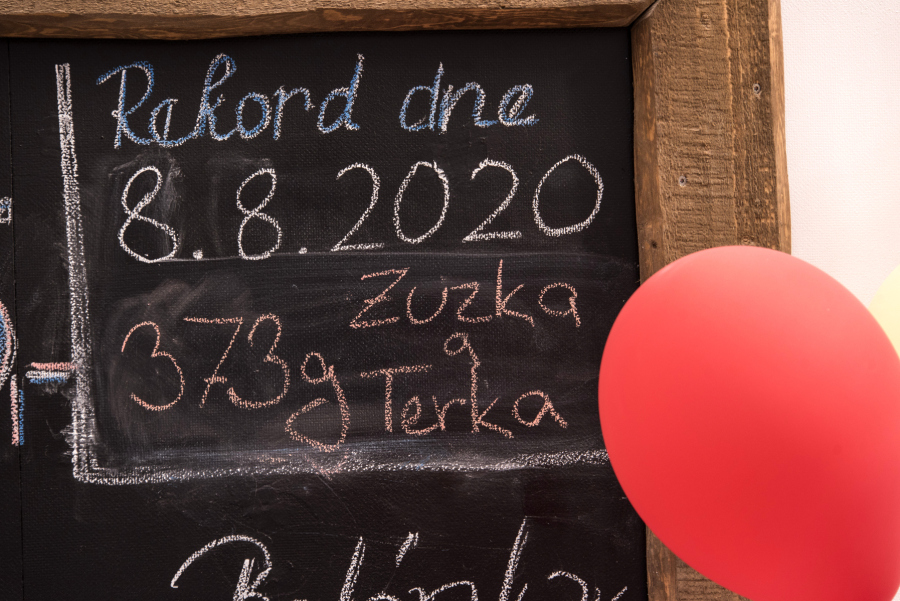 Rekord dne
8.8.2020
373g
Zuzka
a
Terka